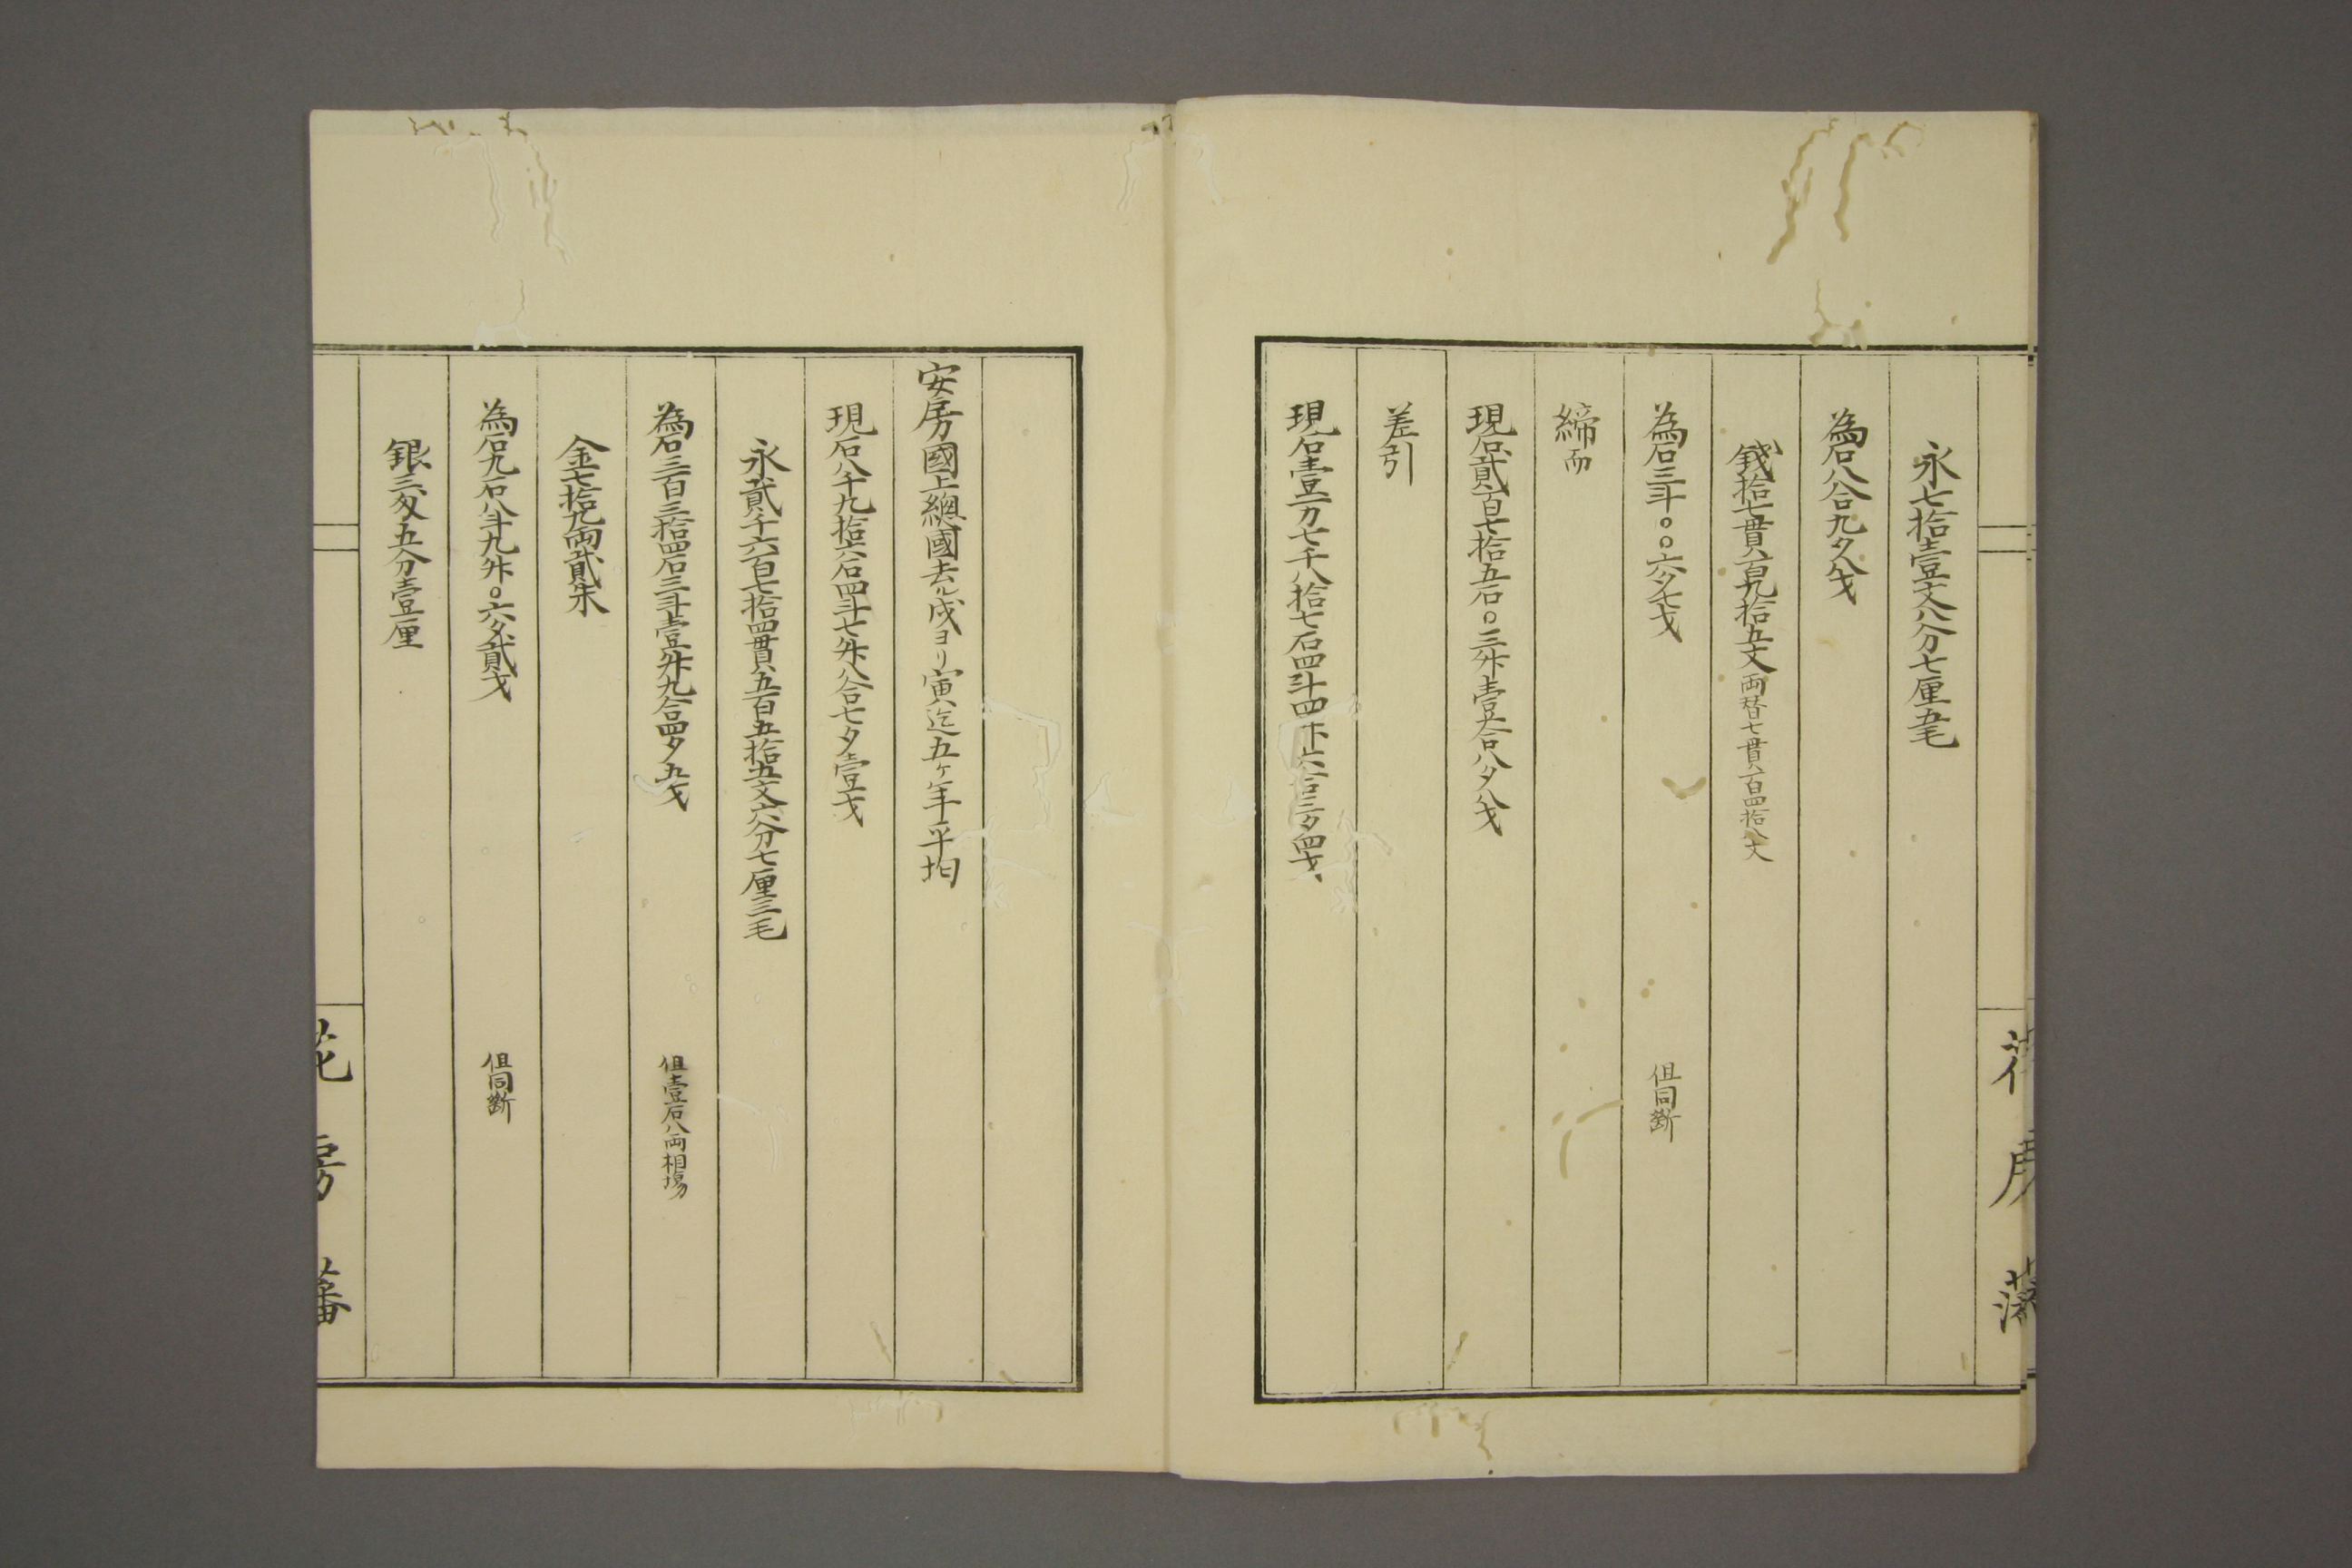 永七拾壹文八分七厘五毛
為石八合九夕八戈
錢拾七貫八百九拾五文 両替七貫八百四拾八文
為石三斗〇〇六夕七戈 但同斷
締而
現石貳百七拾五石〇三升壹合八夕八戈
差引
現石壹万七千八拾七石四斗四升六合三夕四戈
花房藩
安房國上總國去ル戌ヨリ寅迄五ヶ年平均
現石八千九拾六石四斗七升八合七夕壹戈
永貳千六百七拾四貫五百五拾五文六分七厘三毛
為石三百三拾四石三斗壹升九合四夕九戈 但壹石八両相場
金七拾九両貳朱
為石九石八斗九升〇六夕貳戈 但同斷
銀三匁五分壹厘
花房藩